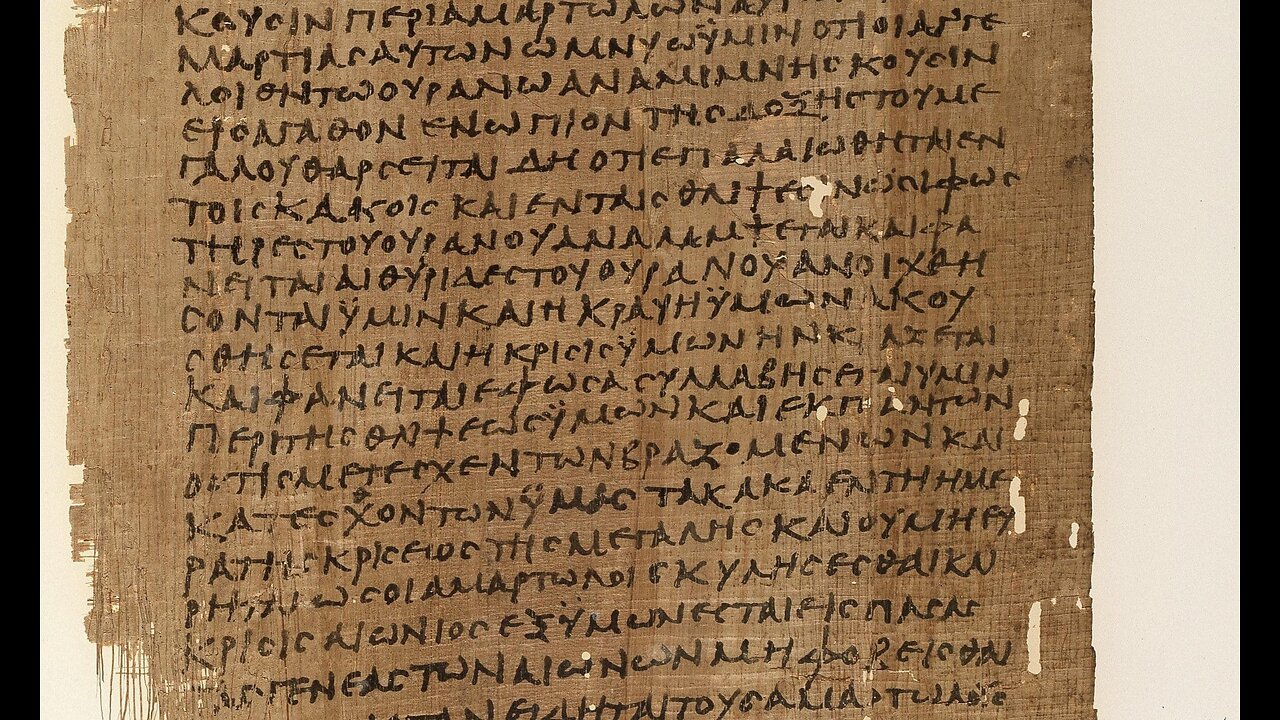 ΚΟΥϹΙΝ ΠΕΡΙ ΑΜΑΡΤΩΛΩΝ
ΜΑΡΤΙΑϹ ΑΥΤΩΝ ΩΜΝΥΩ ΫΜΙΝ ΟΤΙ ΟΙ ΑΓΓΕ
ΛΟΙ ΕΝ ΤΩ ΟΥΡΑΝΩ ΑΝΑΜΙΜΝΗϹΚΟΥϹΙΝ
ΕΙϹ ΑΓΑΘΟΝ ΕΝΩΠΙΟΝ ΤΗϹ ΔΟΞΗϹ ΤΟΥ ΜΕ
ΓΑΛΟΥ ΘΑΡϹΕΙΤΑΙ ΔΗ ΟΤΙ ΕΠΑΛΑΙΩΘΗΤΑΙ ΕΝ
ΤΟΙϹ ΚΑΚΟΙϹ ΚΑΙ ΕΝ ΤΑΙϹ ΘΛΙΨΕϹΙΝ ΩϹΙ ΦΩϹ
ΤΗΡΕϹ ΤΟΥ ΟΥΡΑΝΟΥ ΑΝΑΛΑΜΨΕΤΑΙ ΚΑΙ ΦΑ
ΝΕΙΤΑΙ ΑΙ ΘΥΡΙΔΕϹ ΤΟΥ ΟΥΡΑΝΟΥ ΑΝΟΙΧΘΗ
ϹΟΝΤΑΙ ΫΜΙΝ ΚΑΙ Η ΚΡΑΥΗ ΫΜΩΝ ΑΚΟΥ
ϹΘΗϹΕΤΑΙ ΚΑΙ Η ΚΡΙϹΙϹ ΫΜΩΝ ΗΝ ΚΡΑΖΕΤΑΙ
ΚΑΙ ΦΑΝΕΙΤΑΙ ΕΦ ΩϹΑ ϹΥΛΛΑΒΗϹΕΤΑΙ ΥΜΙΝ
ΠΕΡΙ ΤΗϹ ΘΛΙΨΕΩϹ ΫΜΩΝ ΚΑΙ ΕΚ ΠΑΝΤΩΝ
ΟϹΤΙϹ ΜΕΤΕϹΧΕΝ ΤΩΝ ΒΙΑΖΟΜΕΝΩΝ ΚΑΙ
ΚΑΤΕϹΘΟΝΤΩΝ ΫΜΑϹ ΤΑ ΚΑΚΑ ΕΝ ΤΗ ΗΜΕ
ΡΑ ΤΗϹ ΚΡΙϹΕΩϹ ΤΗϹ ΜΕΓΑΛΗϹ ΚΑΙ ΟΥ ΜΗ ΕΥ
ΡΗΤΑΙ ΩϹ ΟΙ ΑΜΑΡΤΩΛΟΙ ϹΚΥΛΗϹΕϹΘΑΙ ΚΑΙ
ΚΡΙϹΙϹ ΑΙΩΝΙΟϹ ΕΞ ΫΜΩΝ ΕϹΤΑΙ ΕΙϹ ΠΑϹΑϹ
ΤΑϹ ΓΕΝΕΑϹ ΤΩΝ ΑΙΩΝΩΝ ΜΗ ΦΟΒΕΙϹΘΑΙ
ΕΙΔΗΤΑΙ ΤΟΥϹ ΑΜΑΡΤΩΛΟΥϹ